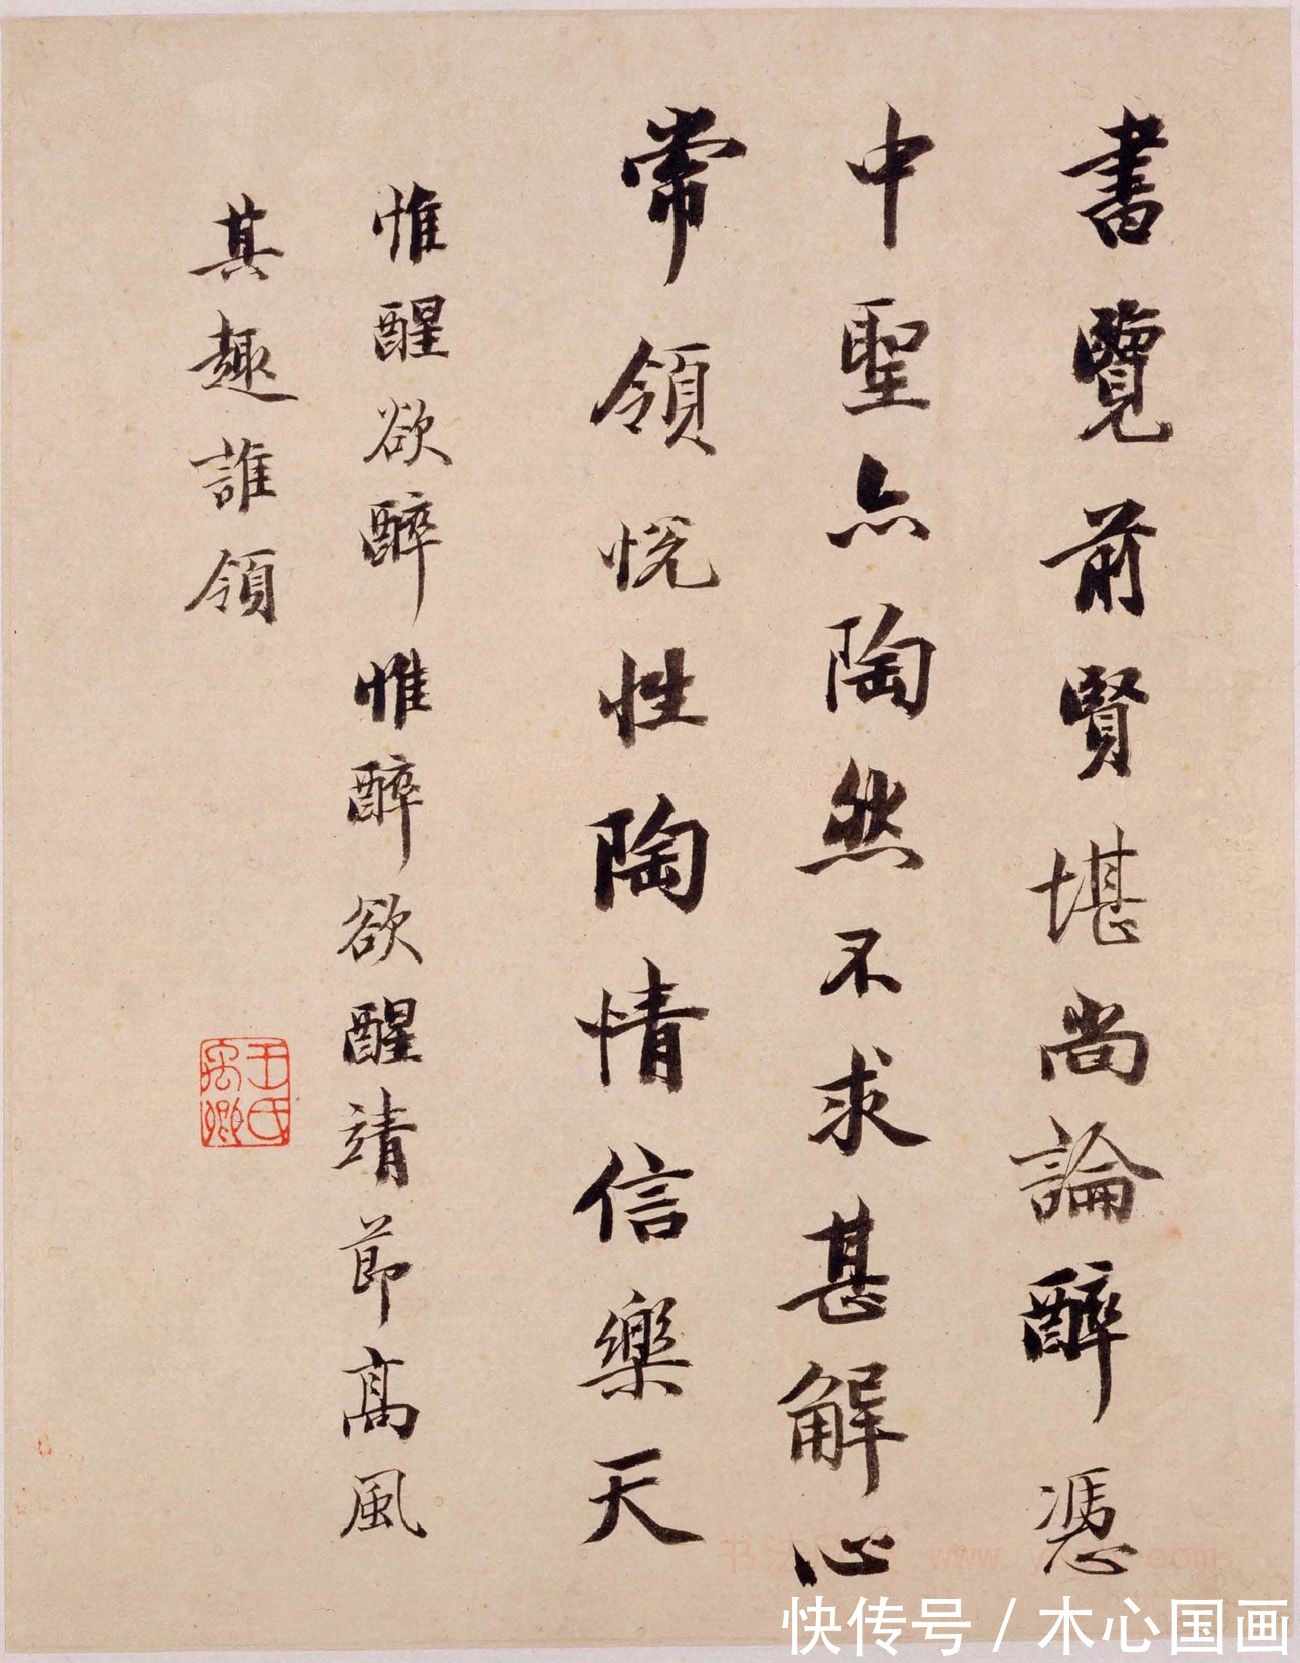 書覽前賢堪尚論醉憑
中聖亦陶然不求甚解心
常領恍性陶情信樂天
惟醒欲醉惟醉欲醒靖節高風
其趣誰領
王氏禹卿
快传号/木心国画